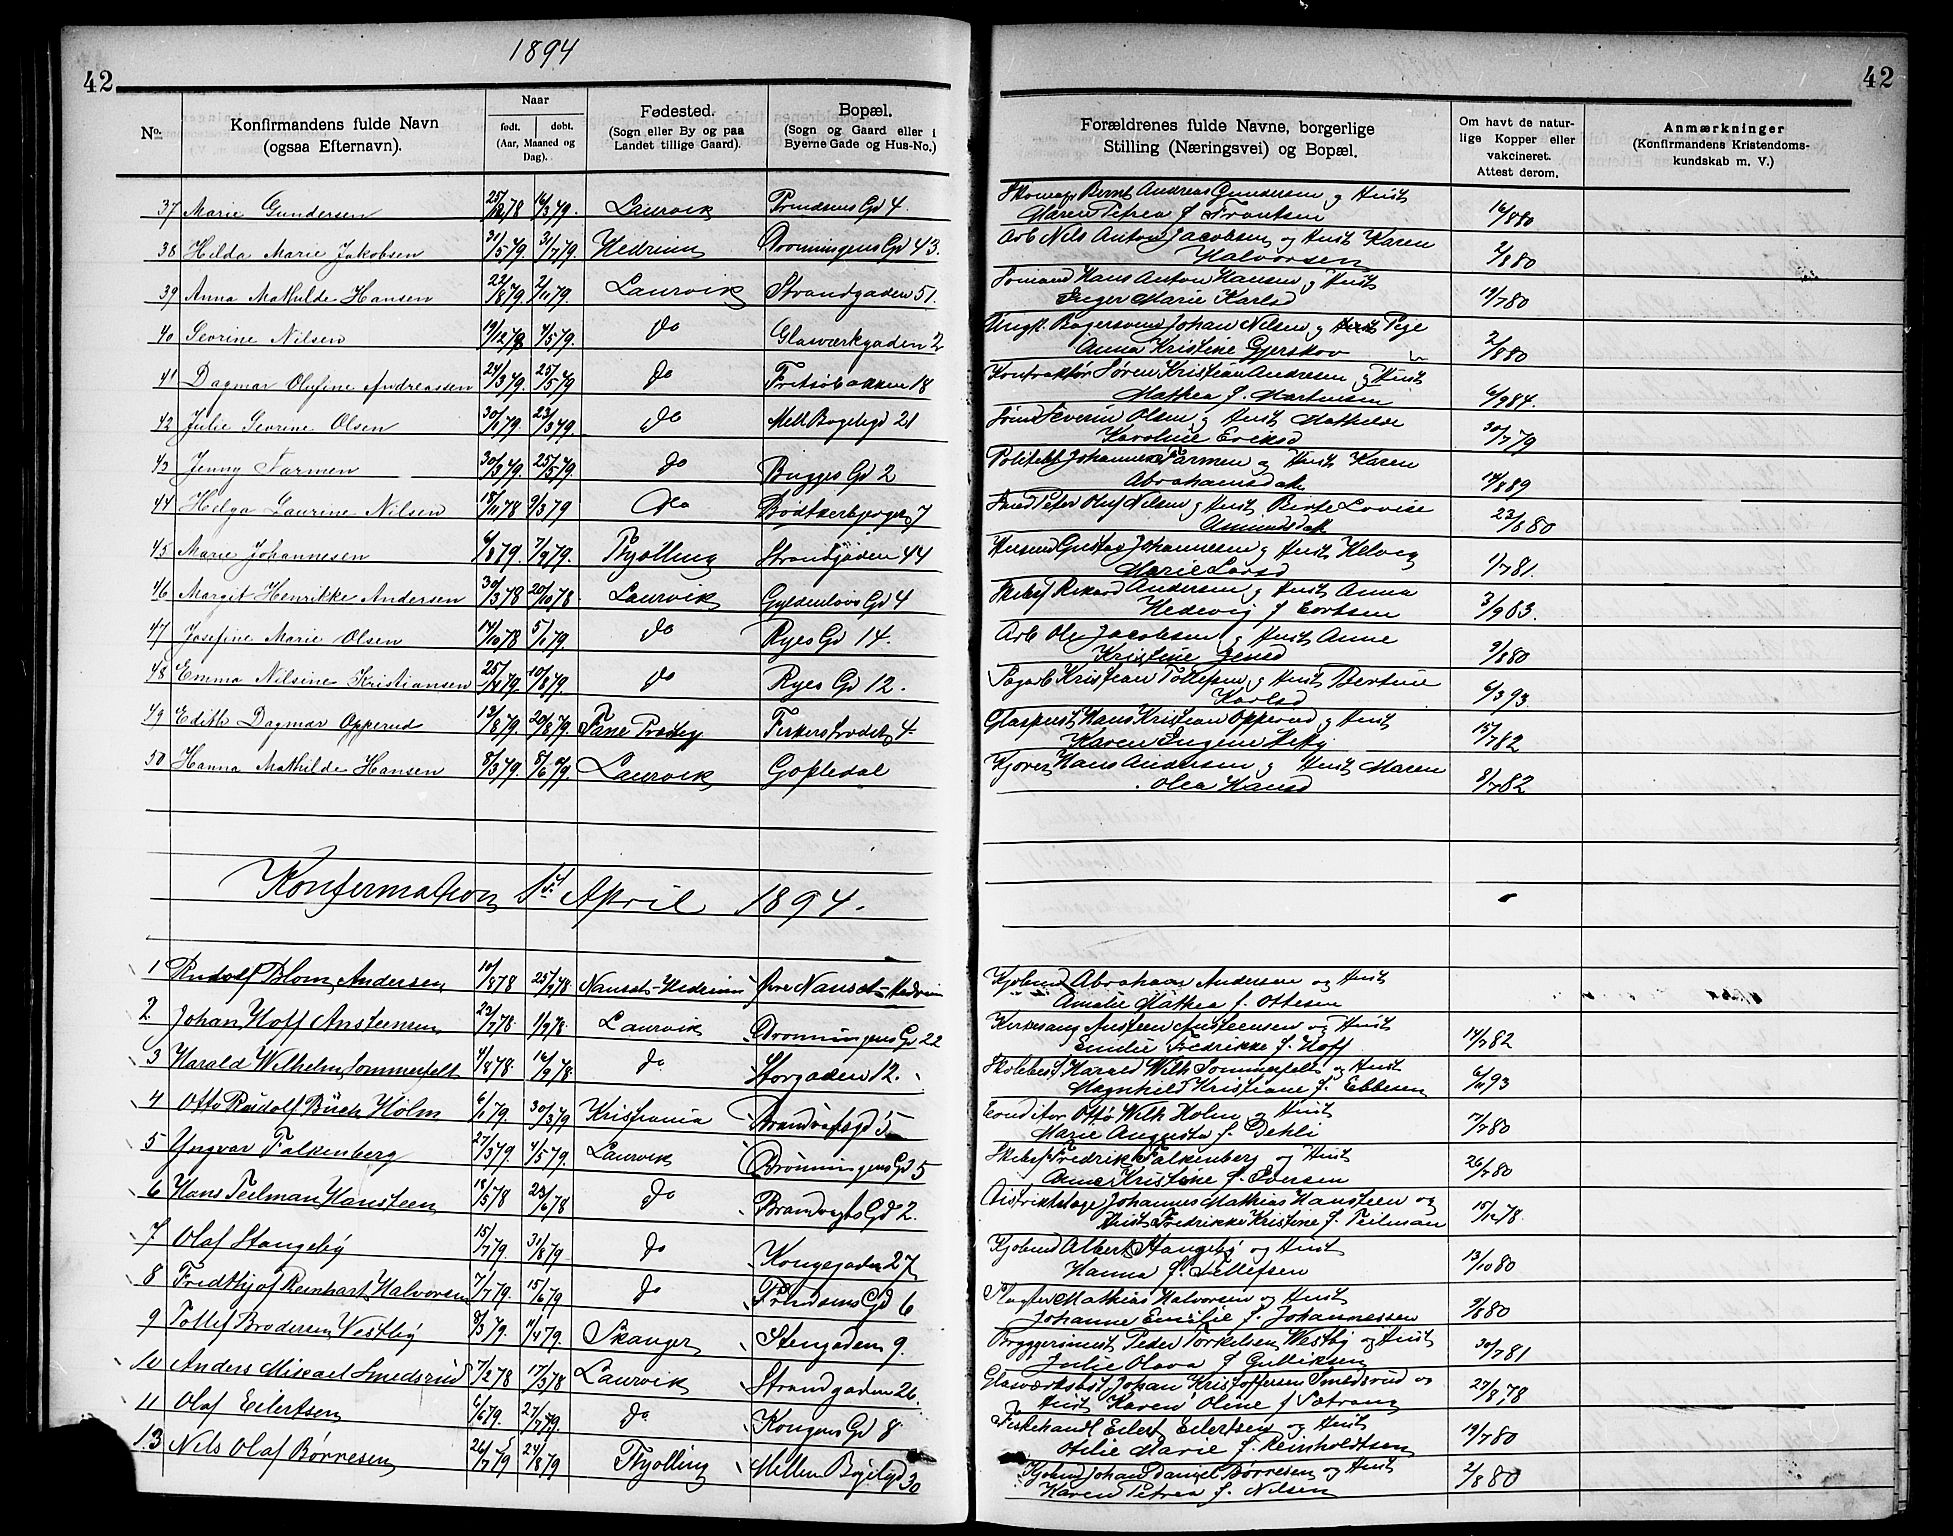 1894
42
No.
Konfirmandens fulde Navn
(ogsaa Efternavn).
Naar
født. døbt.
(Aar, Maaned og
Dag).
Fødested.
(Sogn eller By og paa
Landet tillige Gaard).
Bopæl.
(Sogn og Gaard eller i
Byerne Gade og Hus-No.)
37 Marie Gundersen 16/3 79. Laurvik Gd 4.
38 Hilda Marie Jakobsen 31/5 79. 31/7 79. Hedrum Dronningens Gd 43.
39 Anna Mathilde Hansen 22/8 79. 2/11 79. Laurvik Strandgaden 51.
40 Sevrine Nilsen 19/12 78 4/5 79. do Glasværkgaden 2
41 Dagmar Olufine Andreassen 24/3 79. 25/5 79 do Fritsøbakken 18
42 Julie Sevrine Olsen 30/1 79. 23/3 79. do Mell Bøgeligd 21
43 Jenny Farmen 30/3 79. 25/5 79 do Bugges Gd 2
44 Helga Laurine Nilsen 18/11 78 9/3 79 do 7
45 Marie Johannesen 7/9 79. Thjølling Strandgaden 44
46 Margit Henrikke Andersen 30/3 78 20/10 78 Laurvik Gyldenløvs Gd 4
47 Josefine Marie Olsen 17/10 78 5/1 79. do Ryes Gd 14.
48 Emma Nilsine Kristiansen 10/8 79. do Ryes Gd 12.
49 Edith Dagmar Opperud 20/8 79. 4
50 Hanna Mathilde Hansen 8/3 79. 8/6 79 Laurvik Gopledal
Konfermation 1st April 1894.
1 Rudolf Blom Andersen 10/8 78 25/9 78 Nanset-Hedrum Øvre Nanset-Hedrum
2 Johan Hoff Ansteensen 22/7 78. 1/9 78. Laurvik Dronningens Gd 22
3 Harald Wilhelm Sommerfelt 4/8 78. 16/9 78. do Storgaden 12.
4 Otto Rudolf Buch Holm 6/1 79. 30/3 79 Kristiania 5
5 Yngvar Falkenberg 27/3 79. 4/5 79. Laurvik Dronningens Gd 5
6 Hans Teilman Hansteen 18/5 78 23/6 78 do Brandvagts Gd 2.
7 Olaf Stangeby 15/7 79. 31/8 79 do Kongegaden 27
8 Fredthjof Reinhart Halvorsen 7/1 79. 15/6 79 do Gd 6
9 Tollef Brodersen Vestby 8/3 79. 11/4 79 Skanger Stengaden 9.
10 Anders Mikael Smedsrud 7/2 78 17/3 78 Laurvik Strandgaden 26.
11 Olaf Eilertsen 6/6 79. 27/7 79. do Kongens Gd 8
13 Nils Olaf Børresen 26/7 79 24/8 79 Thjølling Mellem Bøgeligd 30
42
Forældrenes fulde Navne, borgerlige
Stilling (Næringsvei) og Bopæl.
Om havt de natur-
lige Kopper eller
vakcineret.
Attest derom.
Anmærkninger
(Konfirmandens Kristendoms-
kundskab m. V.)
Bernt Andreas Gundersen og Hust
Maren Petrea f. Frantsen 16/8 80
Arb Nils Anton Jacobsen og Hust Karen
Halvorsen 2/8 80
Sømand Hans Anton Hansen og Hust
Inger Marie Karlsd 19/7 80
Ungk. Bagersvend Johan Nilsen og Pige
Anna Kristine Gjerskov 2/8 80
Kontraktør Søren Kristian Andresen og Hust
Mathea f. Martinsen 6/9 84.
Sømd Severin Olsen og Hust Mathilde
Karoline Eriksd 30/7 79
Politibt Johannes Farmen og Hust Karen
Abrahamsdatt 14/8 89
Peter Oluf Nilsen og Hust Birte Lovise
Amundsdatt 23/8 80
Gustav Johannesen og Hust Helvig
Marie Larsd 1/7 81.
Skibsf Rikard Andersen og Hust Anna
Hedevig f. 3/9 83.
Arb Ole Jacobsen og Hust Anne
Kristine Jensd 9/8 80
Sagarb Kristian Tollefsen og Hust Bertine
Karlsd 6/3 93.
Glaspust Hans Kristian Opperud og Hust
Karen Eugene 15/7 82
Hans Andersen og Hust Maren
Olea Hansd 8/7 82
Kjøbmd Abraham Andersen og Hust
Amalie Mathea f. Ottesen
Kirkesang Ansteen Ansteensen og Hust
Emilie Fredrikke f. Hoff 14/7 82
Skolebest Harald Wilh Sommerfelt og Hust
Magnhild Kristiane f. Ebbesen 6/11 93
Conditor Otto Wilh Holm og Hust
Marie Augusta f. Dehli 7/7 80
Skibsf Fredrik Falkenberg og Hust
Anne Kristine f. Eversen 26/7 80
Distriktslæge Johannes Mathias Hansteen og
Hust Fredrikke Kristine f. Teilman 15/12 78.
Kjøbmd Albert Stangeby og Hust
Hanna f. Tollefsen 13/10 80
Slagter Mathias Halvorsen og Hust
Johanne Emilie f. Johannessen 9/8 80
Bryggerimest Peder Torkelsen Westby og Hust
Julie Olava f. Gulliksen 30/7 81
Glasværksbest Johan Kristoffersen Smedsrud og
Hust Karen Oline f. Sætrang 27/8 78
Fiskehandl Eilert Eilertsen og Hust
Otilie Marie f. Reinholdtsen 19/7 80
Kjøbmd Johan Daniel Børresen og Hust
Karen Petrea f. Nilsen 2/8 80